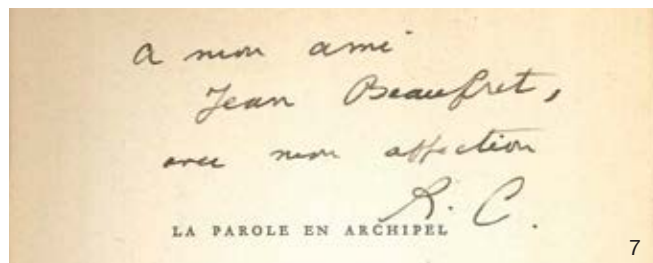 a mon ami
Jean Beaufret,
avec mon affection
R. C.
LA PAROLE EN ARCHIPEL
7